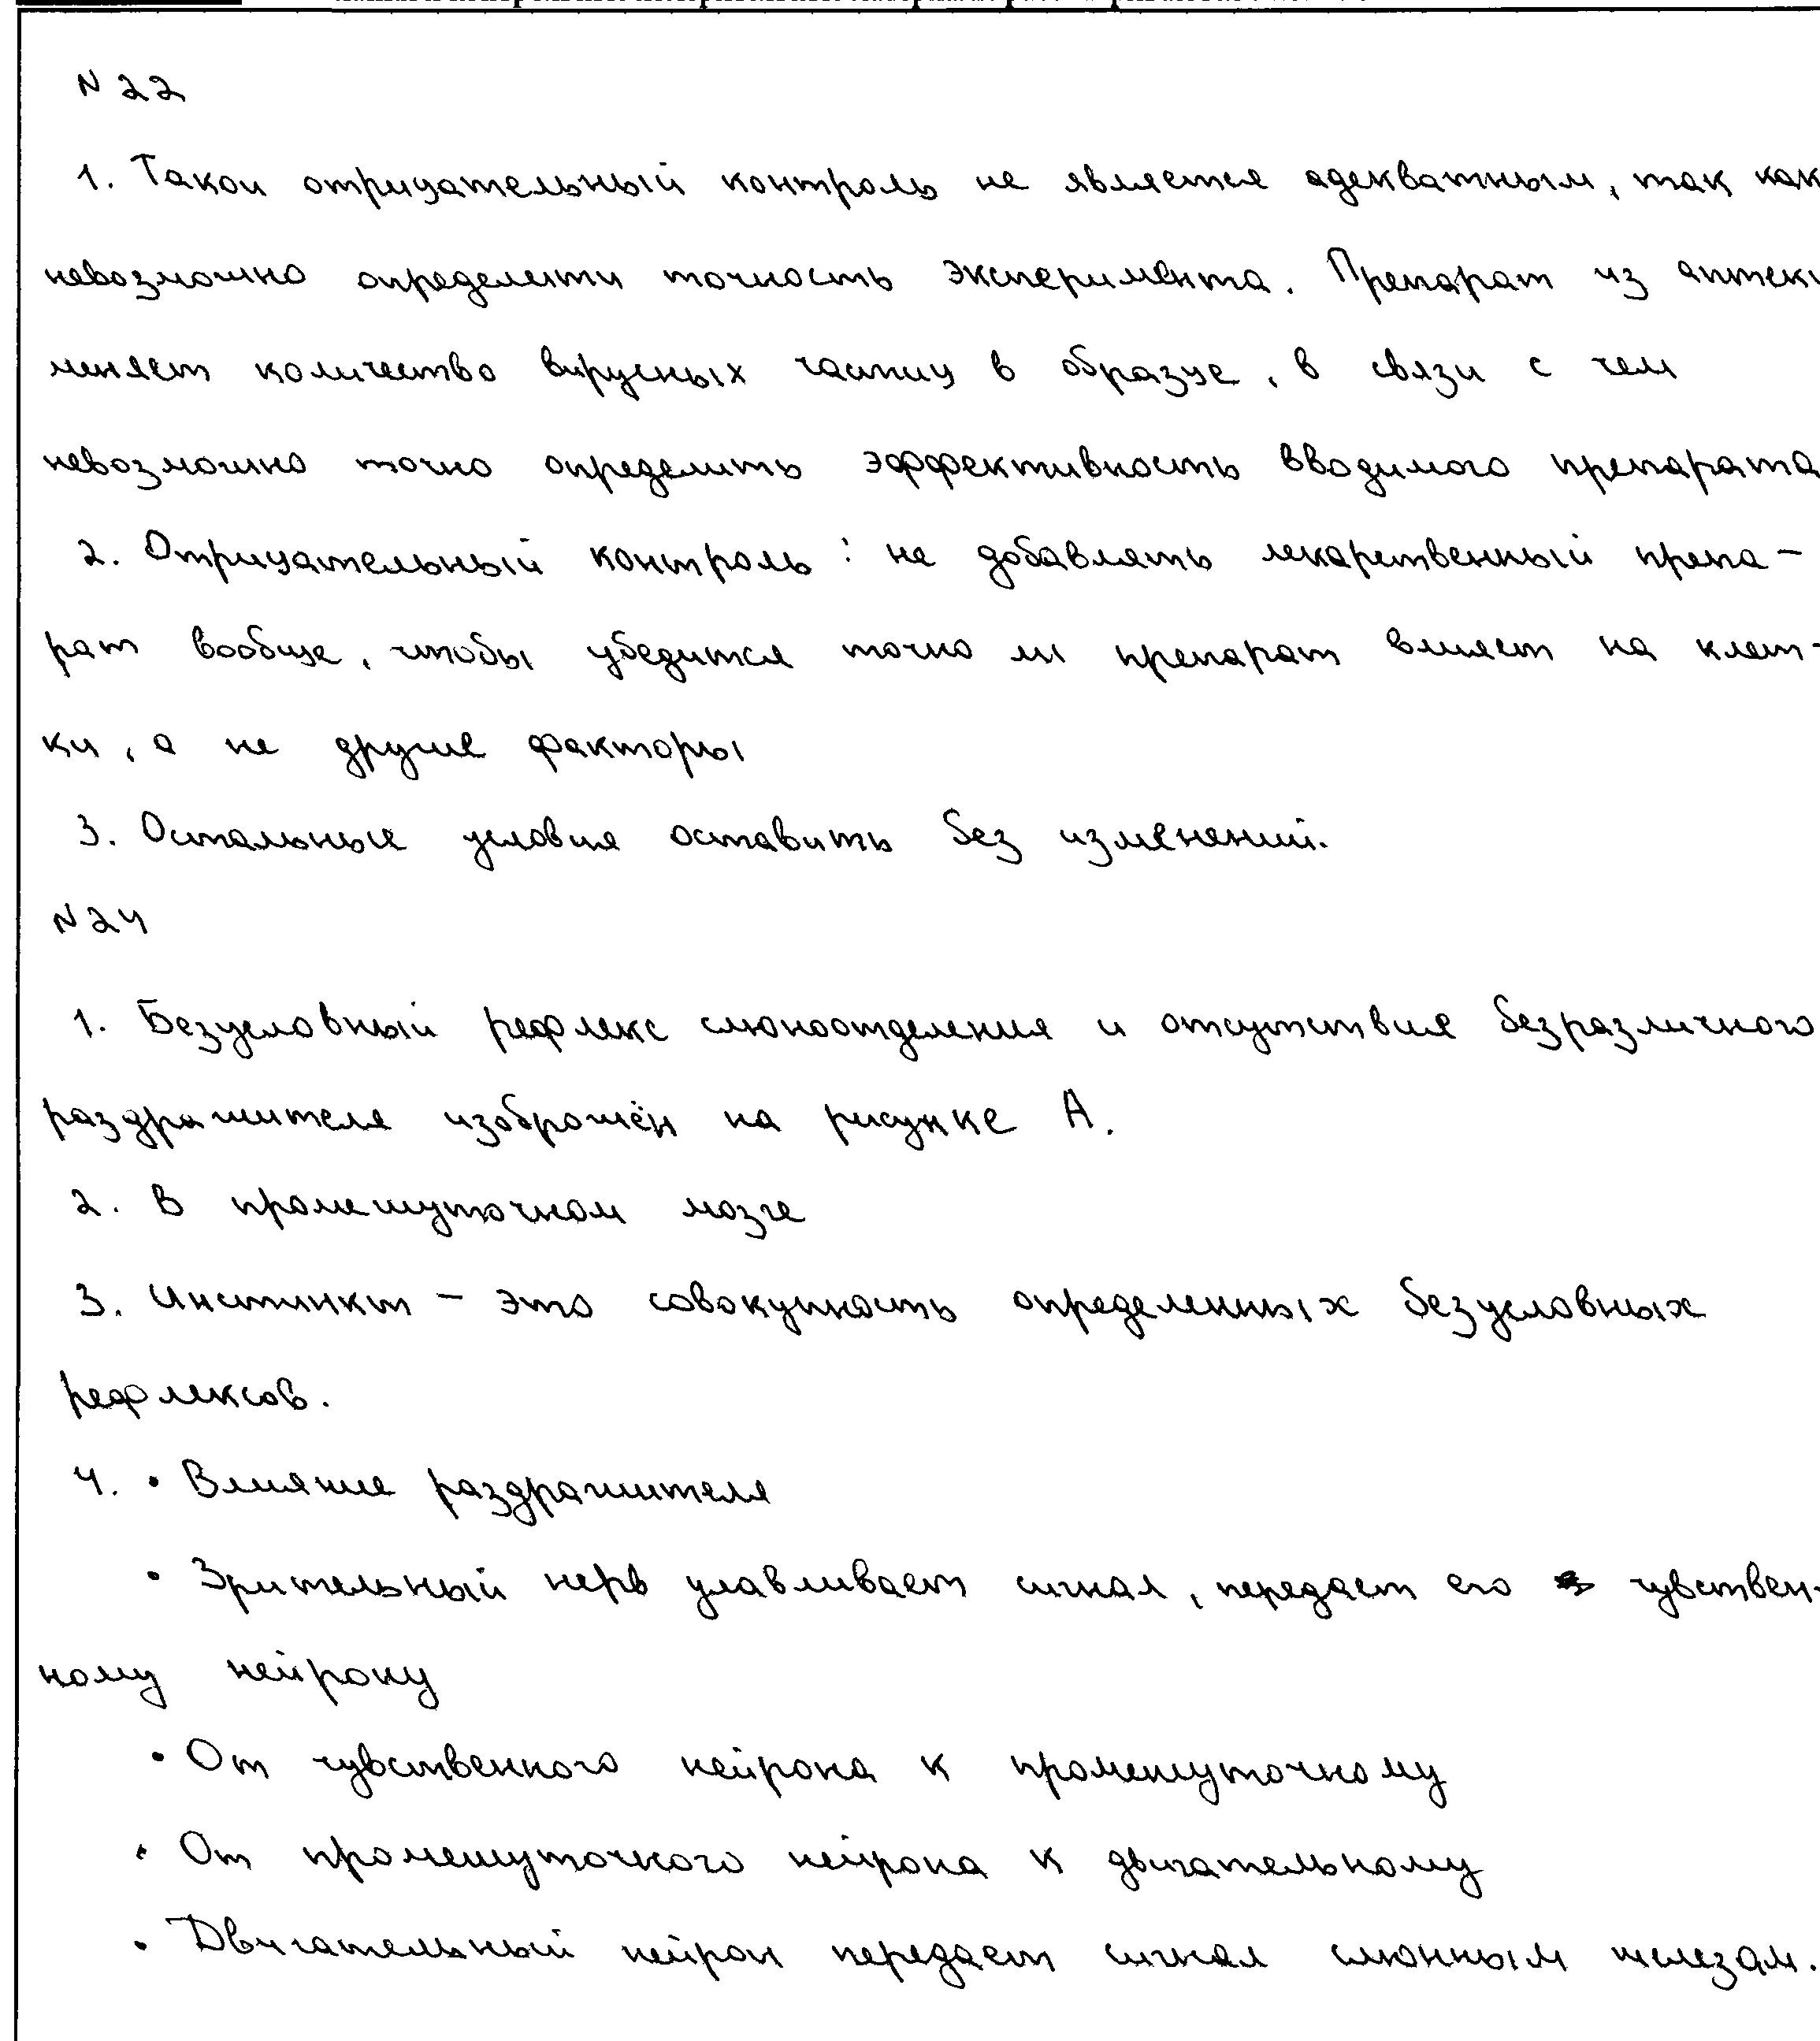 N 22
1. Такой отрицательный контроль не является адекватным, так как
невозможно определити точность эксперимента. Препарат из аптеки
меняет количество вирусных частиц в образце, в связи с чем
невозможно точно определить эффективность вводимого препарата
2. Отрицательный контроль: не добавлять лекарственный препа-
рат вообще, чтобы убедится точно ли препарат влияет на клет-
ки, а не другие факторы
3. Остальные условия оставить без изменений.
N24
1. Безусловный рефлекс слюноотделения и отсутствия безразличного
раздражителя изображён на рисунке А.
2. В промежуточном мозге
3. Инстинкт - это совокупность определенных безусловных
рефлексов.
4. • Влияние раздражителя
• Зрительный нерв улавливает сигнал, передает его чувствен-
ному нейрону
• От чувственного нейрона к промежуточному
• От промежуточного нейрона к двигательному
• Двигательный нейрон передает сигнал слюнным железам.